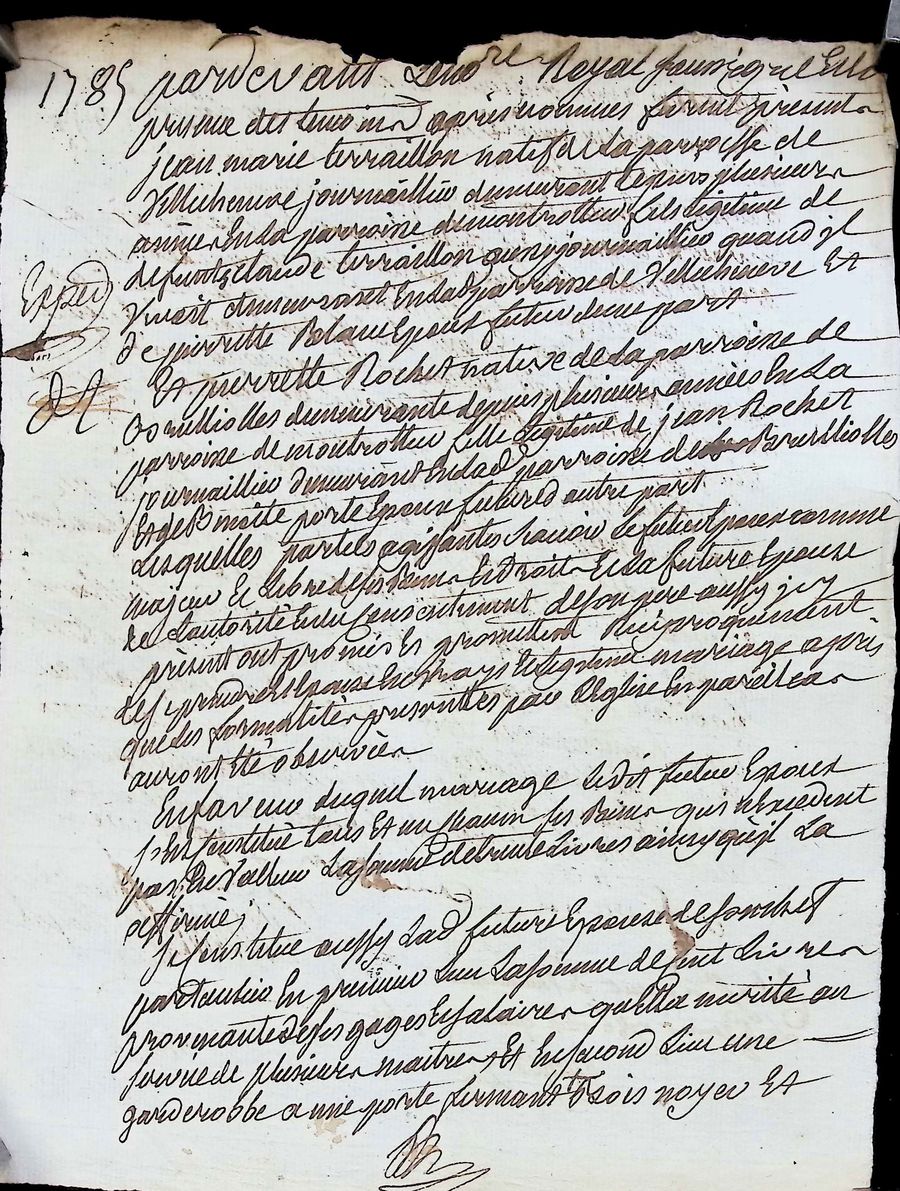 1785 pardevant Le no.re Royal soussigné En la
presence des temoins apres nommés furent présents
jean marie terraillon natif de La parroisse de
Villecheneve journaillier demeurant depuis plusieurs
années En La parroisse de montrottier fils légitime de
defunt Claude terraillon aussy journaillier quand jl
vivoit demeurant En lad parroisse de Villecheneve Et
Exped
de pierrette Blanc Epoux futur d'une part
Et pierrette Rochet native de La parroisse de
Brullioles demeurante depuis plusieurs années En La
parroisse de montrottier fille légitime de jean Rochet
journaillier demeurant En lad parroisse de Brullioles
Et de Benoite porte Epouse future d'autre part
Lesquelles parties agissantes sçavoir Le futur Epoux comme
majeur Et Libre de ses biens Et Droits Et La future Epouse
de L'autorité Et du consentement de son pere aussy jcy
présent ont promis Et promettent Réciproquement
se prendre En vrays Et Légitime mariage après
que Les formalités prescrittes par L'Eglise En pareil cas
auront Eté observées
En faveur duquel mariage Ledit futur Epoux
s'Est constitué tous Et un chacun ses Biens qui n'Excedent
pas En valleur La somme de trente Livres ainsy qu'jl La
affirmé
se constitue aussy Lad future Epouse de son chef
particulier En premier Lieu La somme de cent Livres
provenante de ses gages Et salaires qu'Elle a mérité au
service de plusieurs maitres, Et En second Lieu une
garderobbe a une porte fermant Bois noyer Et